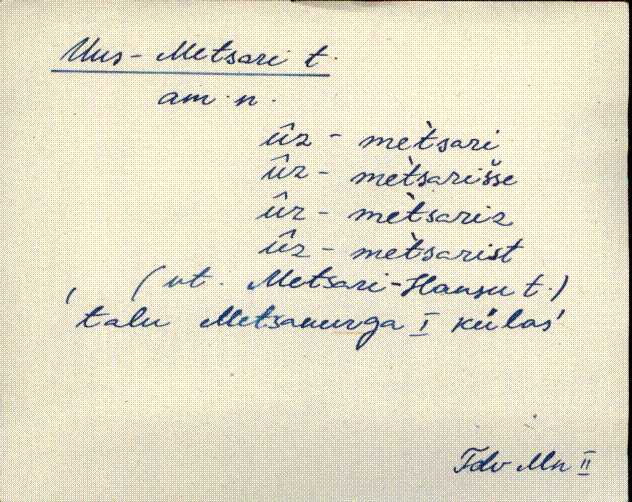 Uus-Metsari t.
am. n.
ûz - mètsari
ûz - mètsarišse
ûz - mètsariz
ûz - mètsarist
(vt. Metsari-Hansu t.)
'talu Metsanurga I külas'
Tdv Mn II